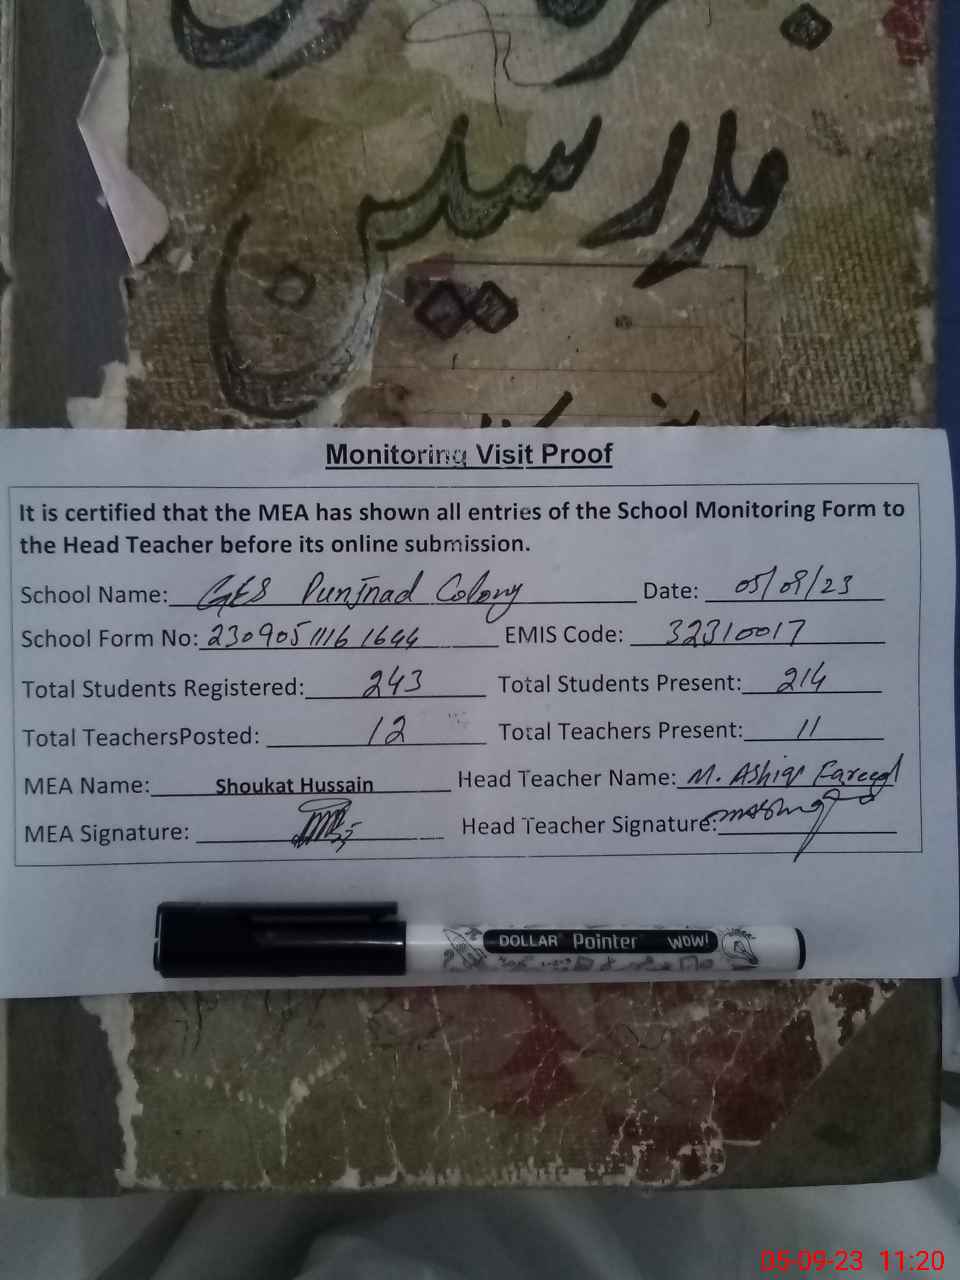 مدرسین
Monitoring Visit Proof
It is certified that the MEA has shown all entries of the School Monitoring Form to
the Head Teacher before its online submission.
School Name: GES Punjnad Colony Date: 05/09/23
School Form No: 23090511161644 EMIS Code: 32310017
Total Students Registered: 243 Total Students Present: 214
Total TeachersPosted: 12 Total Teachers Present: 11
MEA Name: Shoukat Hussain Head Teacher Name: M. Ashiq Fareed
MEA Signature: Head Teacher Signature:
DOLLAR Pointer WOW!
05-09-23 11:20